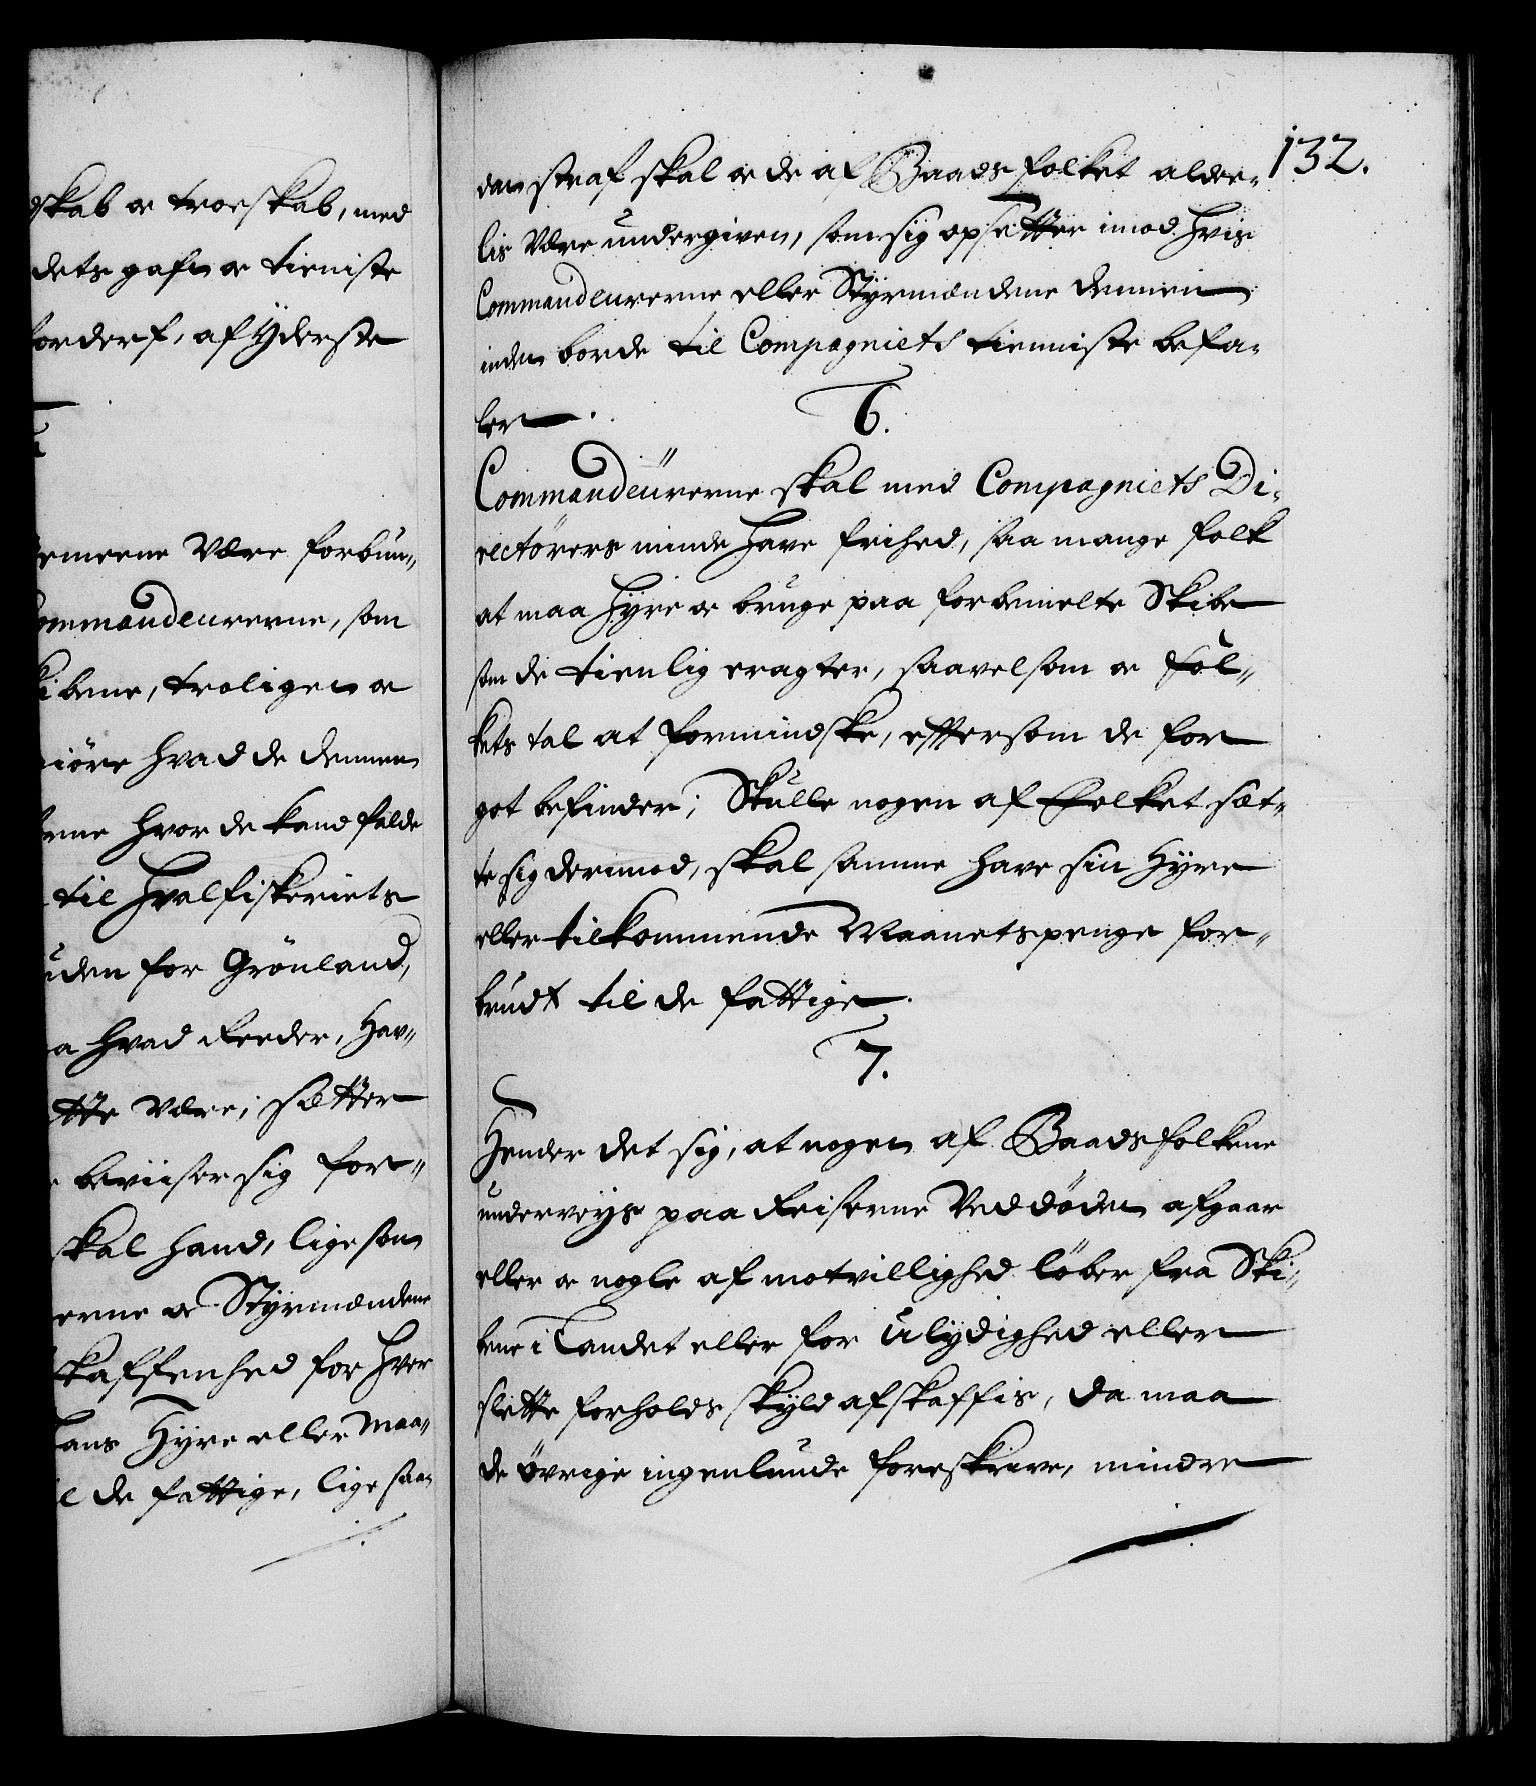 dskab oc troeskab, med
dets gafn oc tieniste
forderf, af Yderste
emeene være forbun„
ommandeurerne, som
ibene, troligen oc
iöre hvad de dennem
rne hvor de kand falde
til Hvalfiskeriets
uden for Grönland,
a hvad Reeder, Hav„
tte være; sætter
beviiser sig for„
skal hand, lige som
erne oc Styrmændene
skaffenhed for hver
hans Hyre eller Maa„
l de fattige, lige saa„
132.
dan straf skal oc de af Baadsfolket alde„
lis være undergiven, som sig opsætter imod hvis
Commandeurerne eller Styrmændene dennem
inden borde til Compagniets tienniste befa„
ler.
6.
Commandeürerne skal med Compagniets Di„
rectörers minde have frihed, saa mange folk
at maa hyre oc bruge paa forbemelte Skibe
som de tienlig eragter, saavelsom oc fol„
kets tal at formindske, effter som de for
got befinder; Skulle nogen af Folket sæt„
te sig derimod, skal samme have sin Hyre
eller tilkommende Maanetspenge for„
brudt til de fattige.
7.
Hender det sig, at nogen af Baadsfolkene
underveys paa Reiserne ved döden afgaar
eller oc nogle af motvillighed löber fra Ski„
bene i Landet eller for Ulydighed eller
slette forholds skyld afskaffis, da maa
de övrige ingenlunde foreskrive, mindre